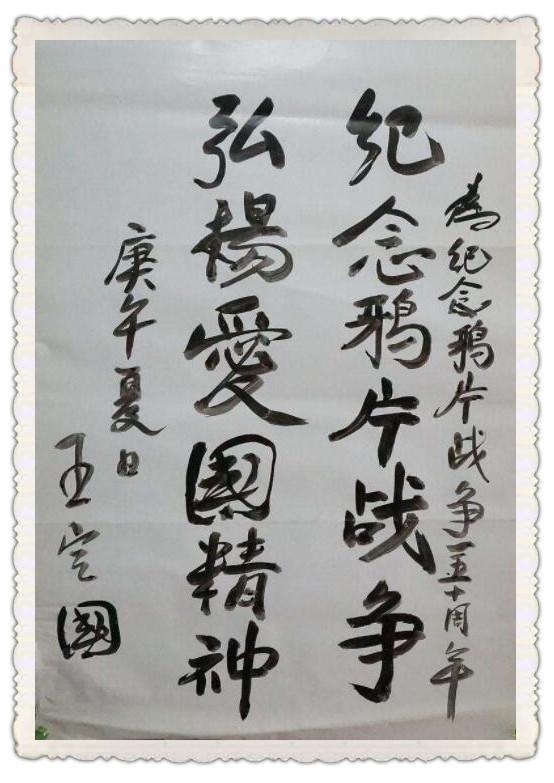 為纪念鸦片战争一五十周年
纪念鸦片战争
弘楊愛國精神
庚午夏日
王定國